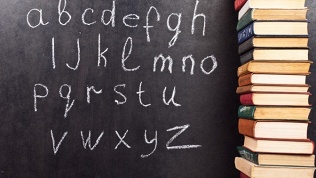 a b c d e f g h
I J k l m n o
p q r s t u
v w x y z